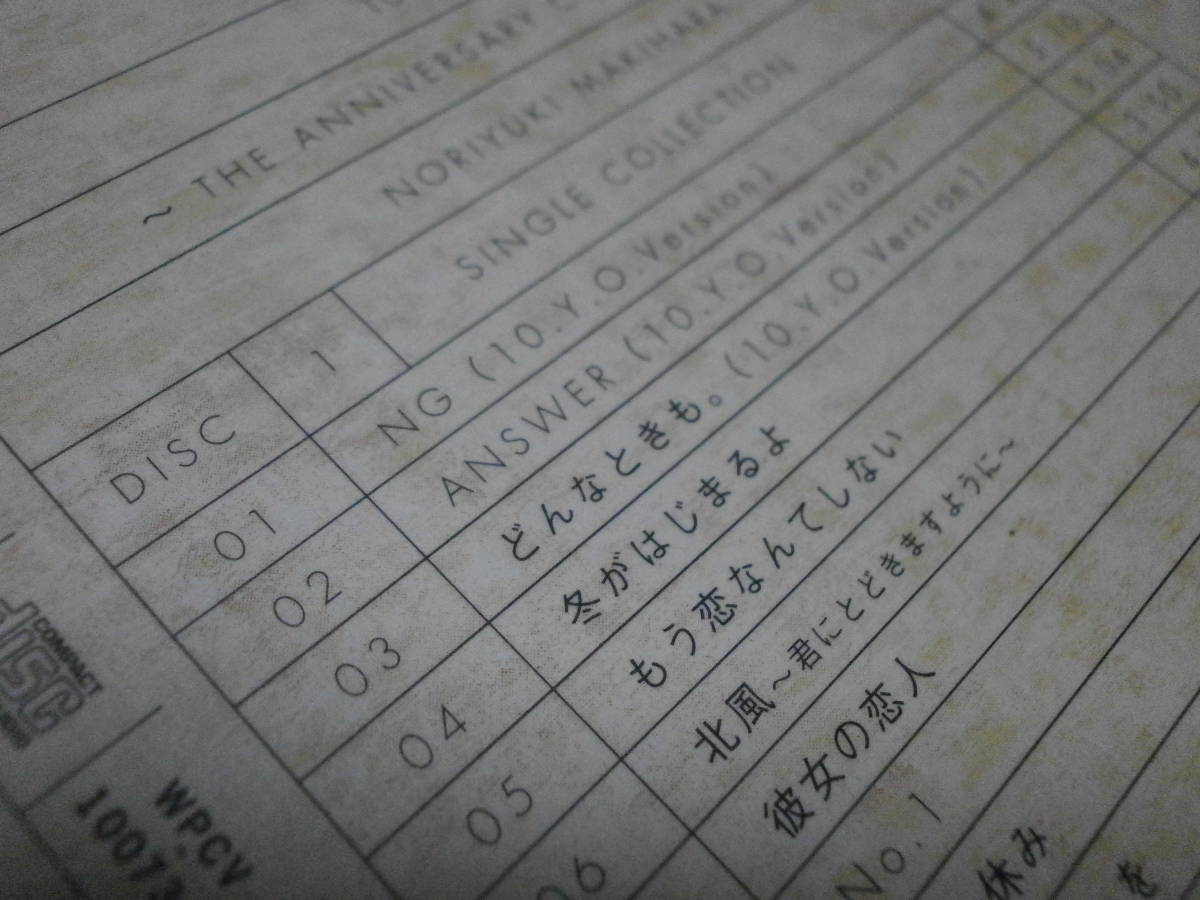 TO
~ THE ANNIVERSARY C
NORIYUKI MAKIHARA
SINGLE COLLECTION
DISC 1
01 NG (10.Y.O.Version) 5 10
02 ANSWER (10.Y.O.Version) 5 54
03 どんなときも。(10.Y.O.Version) 3 50
04 冬がはじまるよ
05 もう恋なんてしない
06 北風~君にとどきますように~
彼女の恋人
No. 1
休み
を
COMPACT
DISC
WPCV
10073